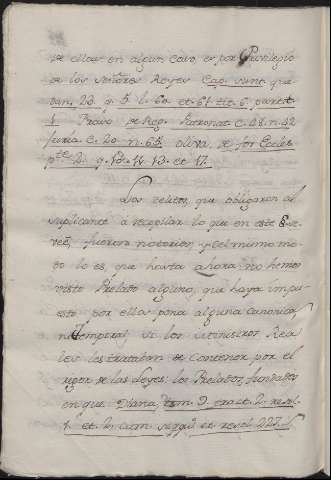 de ellas en algun caso, es por Privilegio
de los Señores Reyes Cap. sunt que
dam, 23. q. 5. l. 60. et 61. tit. 6. part.
1. Bravo de Reg. Patronat. c. 48. n. 42
furia c. 20. n. 65. oliva, de for. Eccles.
pte 2. q. 13. 11. 13. et 17.
Los delitos, que obligaron al
suplicante à recopilar lo que en este
fueron notorios, y del mismo mo
do lo es, que hasta ahora no hemos
visto Prelado alguno, que haya impu
esto por ellos pena alguna canonica,
ni temporal; si los Ministros Rea
les los trataban de contener por el
rigor de las Leyes, los Prelados, fundados
en que Diana, tom. 9. tract. 2. resol.
1. et 2. cum seqq. et resol. 227.